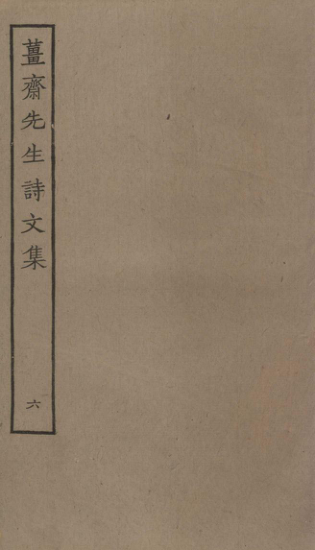 薑齋先生詩文集
六